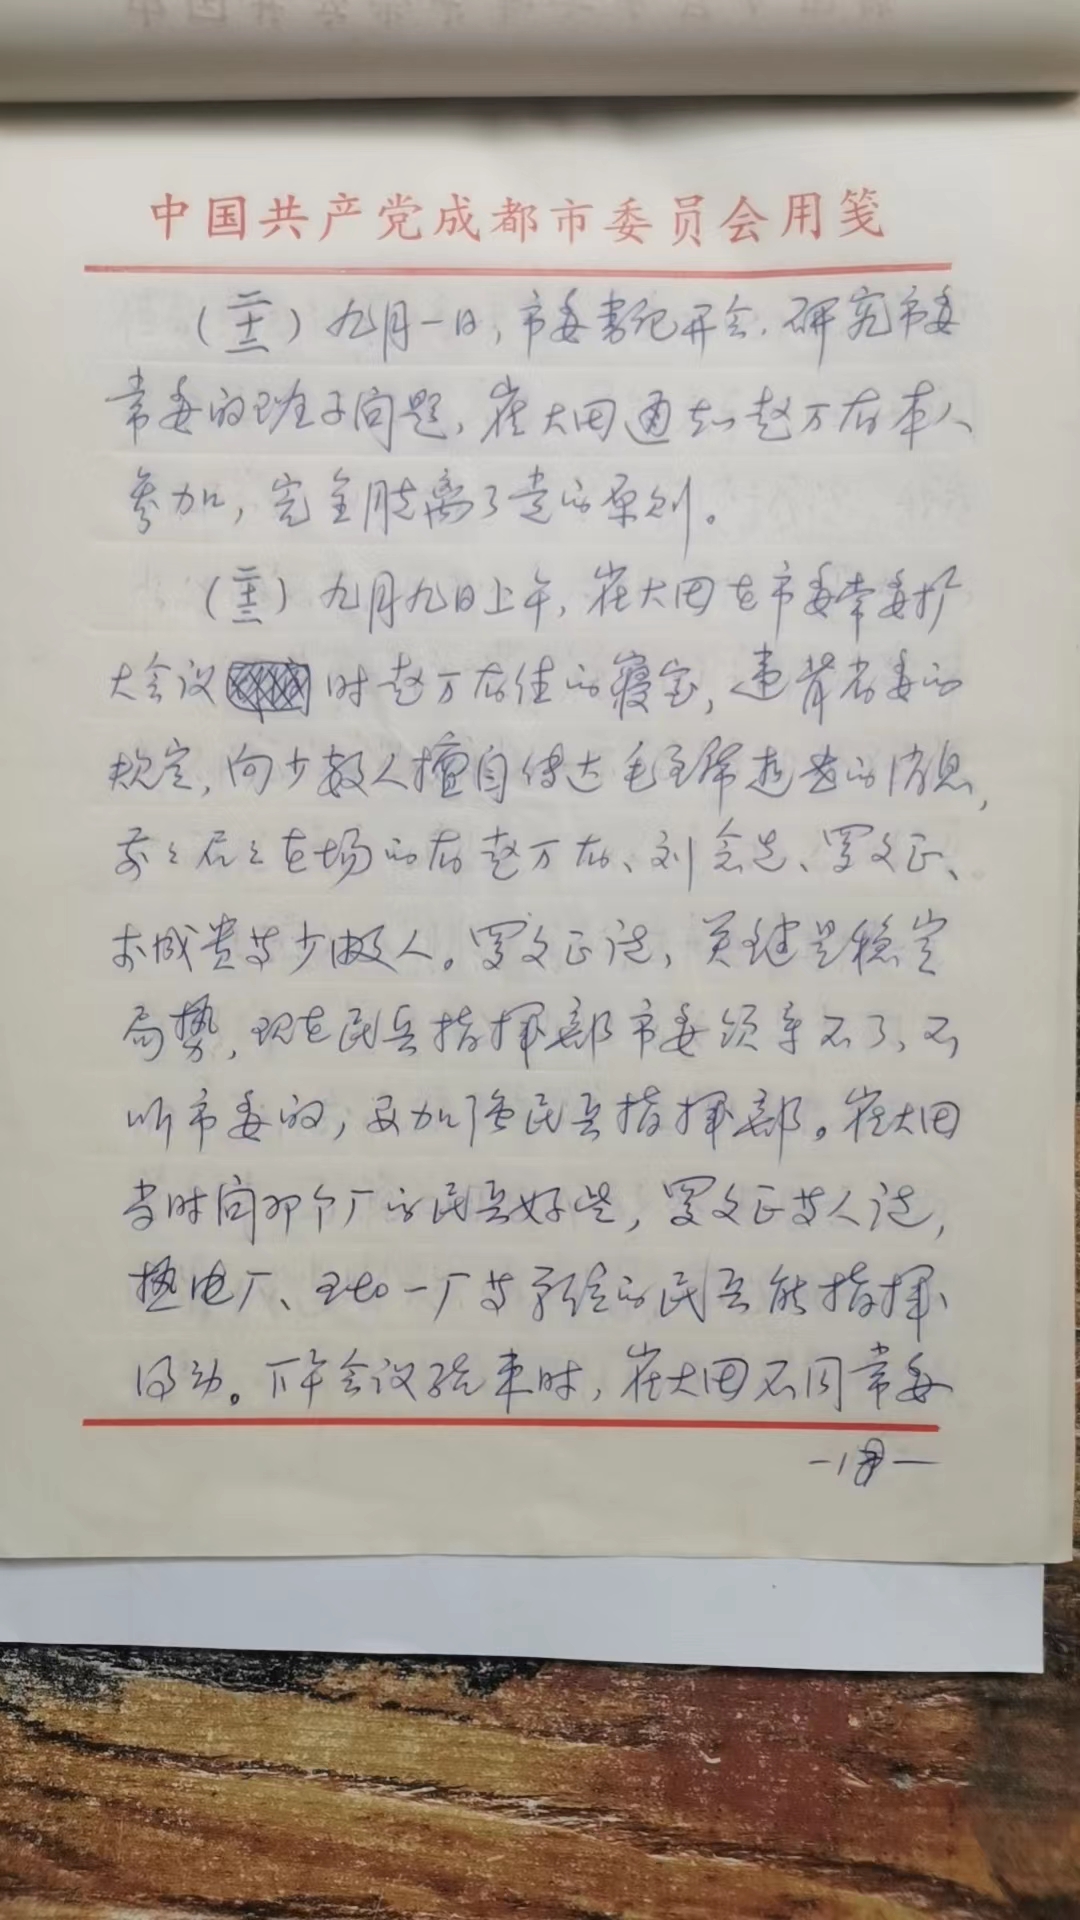 中国共产党成都市委员会用笺
(二十二)九月一日,市委书记开会.研究市委
常委的班子问题,崔大田通知赵万存本人
参加,完全脱离了党的原则。
(二十三)九月九日上午,崔大田在市委常委扩
大会议时赵万存住的寝室,违背省委的
规定,向少数人擅自传达毛主席逝世的消息,
前々后々在场的有赵万存、刘念先、罗文正、
成贵等少数人。罗文正说,关键是稳定
局势,现在民兵指挥部市委领导不了、不
听市委的,要加强民兵指挥部。崔大田
当时问那个厂的民兵好些,罗文正等人说,
热电厂、一厂等单位的民兵能指挥
得动。下午会议结束时,崔大田不同常委